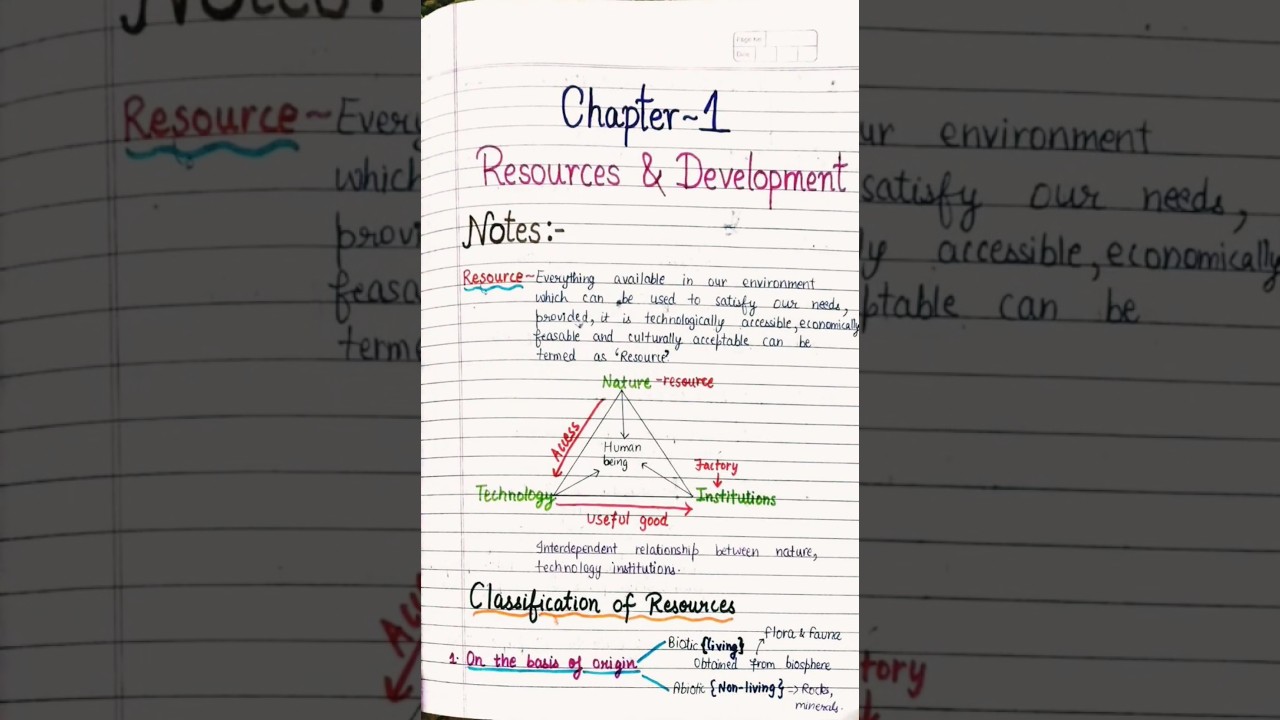 Page No.
Date
Chapter~1
Resources & Development
Notes:-
Resource~ Everything available in our environment
which can be used to satisfy our needs,
provided, it is technologically accessible, economically
feasable and culturally acceptable can be
termed as 'Resource'.
Nature -resource
Access
Human
being
Factory
Technology
Institutions
Useful good
Interdependent relationship between nature,
technology institutions.
Classification of Resources
1. On the basis of origin
Biotic {living}
flora & fauna
Obtained from biosphere
Abiotic {Non-living} => Rocks,
minerals.